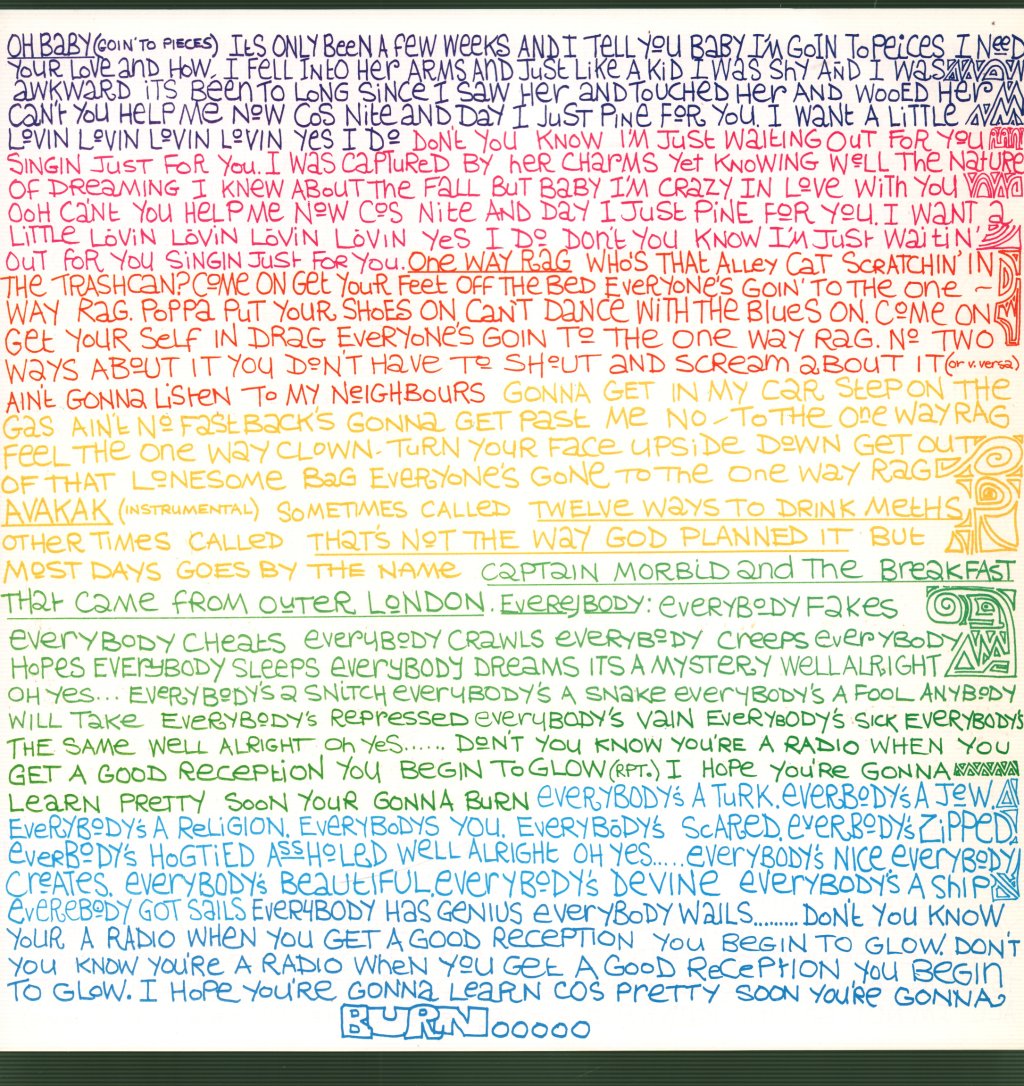 OH BABY (GOIN' TO PIECES) ITS ONLY BEEN A FEW WEEKS AND I TELL YOU BABY I'M GOIN TO PEICES I NEED
YOUR LOVE AND HOW. I FELL INTO HER ARMS AND JUST LIKE A KID I WAS SHY AND I WAS
AWKWARD ITS BEEN TO LONG SINCE I SAW HER AND TOUCHED HER AND WOOED HER
CAN'T YOU HELP ME NOW COS NITE AND DAY I JUST PINE FOR YOU. I WANT A LITTLE
LOVIN LOVIN LOVIN LOVIN YES I DO DON'T YOU KNOW I'M JUST WAITING OUT FOR YOU
SINGIN JUST FOR YOU. I WAS CAPTURED BY HER CHARMS YET KNOWING WELL THE NATURE
OF DREAMING I KNEW ABOUT THE FALL BUT BABY I'M CRAZY IN LOVE WITH YOU
OOH CAN'T YOU HELP ME NOW COS NITE AND DAY I JUST PINE FOR YOU. I WANT A
LITTLE LOVIN LOVIN LOVIN LOVIN YES I DO DON'T YOU KNOW I'M JUST WAITIN'
OUT FOR YOU SINGIN JUST FOR YOU. ONE WAY RAG WHO'S THAT ALLEY CAT SCRATCHIN' IN
THE TRASHCAN? COME ON GET YOUR FEET OFF THE BED EVERYONE'S GOIN' TO THE ONE ~
WAY RAG. POPPA PUT YOUR SHOES ON CAN'T DANCE WITH THE BLUES ON. COME ON
GET YOUR SELF IN DRAG EVERYONE'S GOIN TO THE ONE WAY RAG. NO TWO
WAYS ABOUT IT YOU DON'T HAVE TO SHOUT AND SCREAM ABOUT IT (or v. versa)
AIN'T GONNA LISTEN TO MY NEIGHBOURS GONNA GET IN MY CAR STEP ON THE
GAS AIN'T NO FASTBACK'S GONNA GET PAST ME NO - TO THE ONE WAY RAG
FEEL THE ONE WAY CLOWN - TURN YOUR FACE UPSIDE DOWN GET OUT
OF THAT LONESOME BAG EVERYONE'S GONE TO THE ONE WAY RAG
AVAKAK (INSTRUMENTAL) SOMETIMES CALLED TWELVE WAYS TO DRINK METHS
OTHER TIMES CALLED THAT'S NOT THE WAY GOD PLANNED IT BUT
MOST DAYS GOES BY THE NAME CAPTAIN MORBID AND THE BREAKFAST
THAT CAME FROM OUTER LONDON. EVEREJBODY: EVERYBODY FAKES
EVERYBODY CHEATS EVERYBODY CRAWLS EVERYBODY CREEPS EVERYBODY
HOPES EVERYBODY SLEEPS EVERYBODY DREAMS ITS A MYSTERY WELL ALRIGHT
OH YES... EVERYBODY'S A SNITCH EVERYBODY'S A SNAKE EVERYBODY'S A FOOL ANYBODY
WILL TAKE EVERYBODY'S REPRESSED EVERYBODY'S VAIN EVERYBODY'S SICK EVERYBODY'S
THE SAME WELL ALRIGHT OH YES...... DON'T YOU KNOW YOU'RE A RADIO WHEN YOU
GET A GOOD RECEPTION YOU BEGIN TO GLOW (RPT.) I HOPE YOU'RE GONNA
LEARN PRETTY SOON YOUR GONNA BURN EVERYBODY'S A TURK. EVERBODY'S A JEW.
EVERYBODY'S A RELIGION. EVERYBODYS YOU. EVERYBODY'S SCARED. EVERBODY'S ZIPPED.
EVERBODY'S HOGTIED ASSHOLED WELL ALRIGHT OH YES..... EVERYBODY'S NICE EVERYBODY
CREATES. EVERYBODY'S BEAUTIFUL. EVERYBODY'S DEVINE EVERYBODY'S A SHIP
EVEREBODY GOT SAILS EVERYBODY HAS GENIUS EVERYBODY WAILS......... DON'T YOU KNOW
YOUR A RADIO WHEN YOU GET A GOOD RECEPTION YOU BEGIN TO GLOW. DON'T
YOU KNOW YOU'RE A RADIO WHEN YOU GET A GOOD RECEPTION YOU BEGIN
TO GLOW. I HOPE YOU'RE GONNA LEARN COS PRETTY SOON YOU'RE GONNA
BURN OOOOO